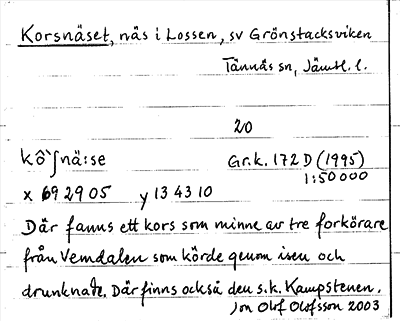 Korsnäset, näs i Lossen, sv Grönstacksviken
Tännäs sn, Jämtl. l.
20
kô`ʃnä:se Gr.k. 172 D (1995)
1:50 000
x 69 29 05 y 13 43 10
Där fanns ett kors som minne av tre forkörare
från Vemdalen som körde genom isen och
drunknade. Där finns också den s.k. Kampstenen.
Jon Olof Olofsson 2003